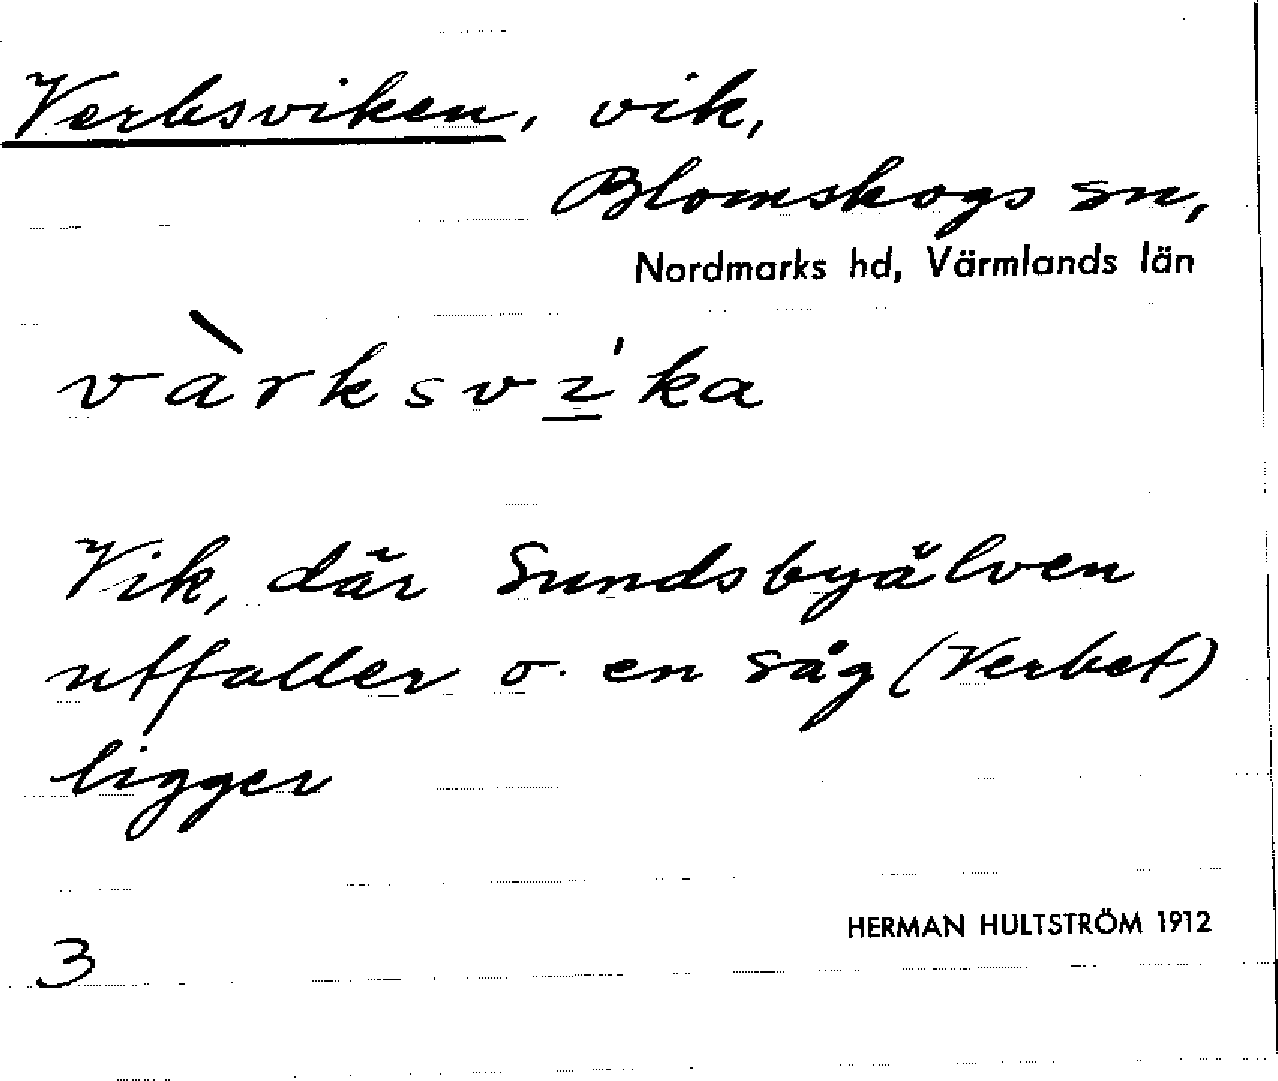 Verksviken, vik,
Blomskogs sn,
Nordmarks hd, Värmlands län
vàrksvi̲ka
Vik, där Sundsbyälven
utfaller o. en såg (Verket)
ligger
HERMAN HULTSTRÖM 1912
3